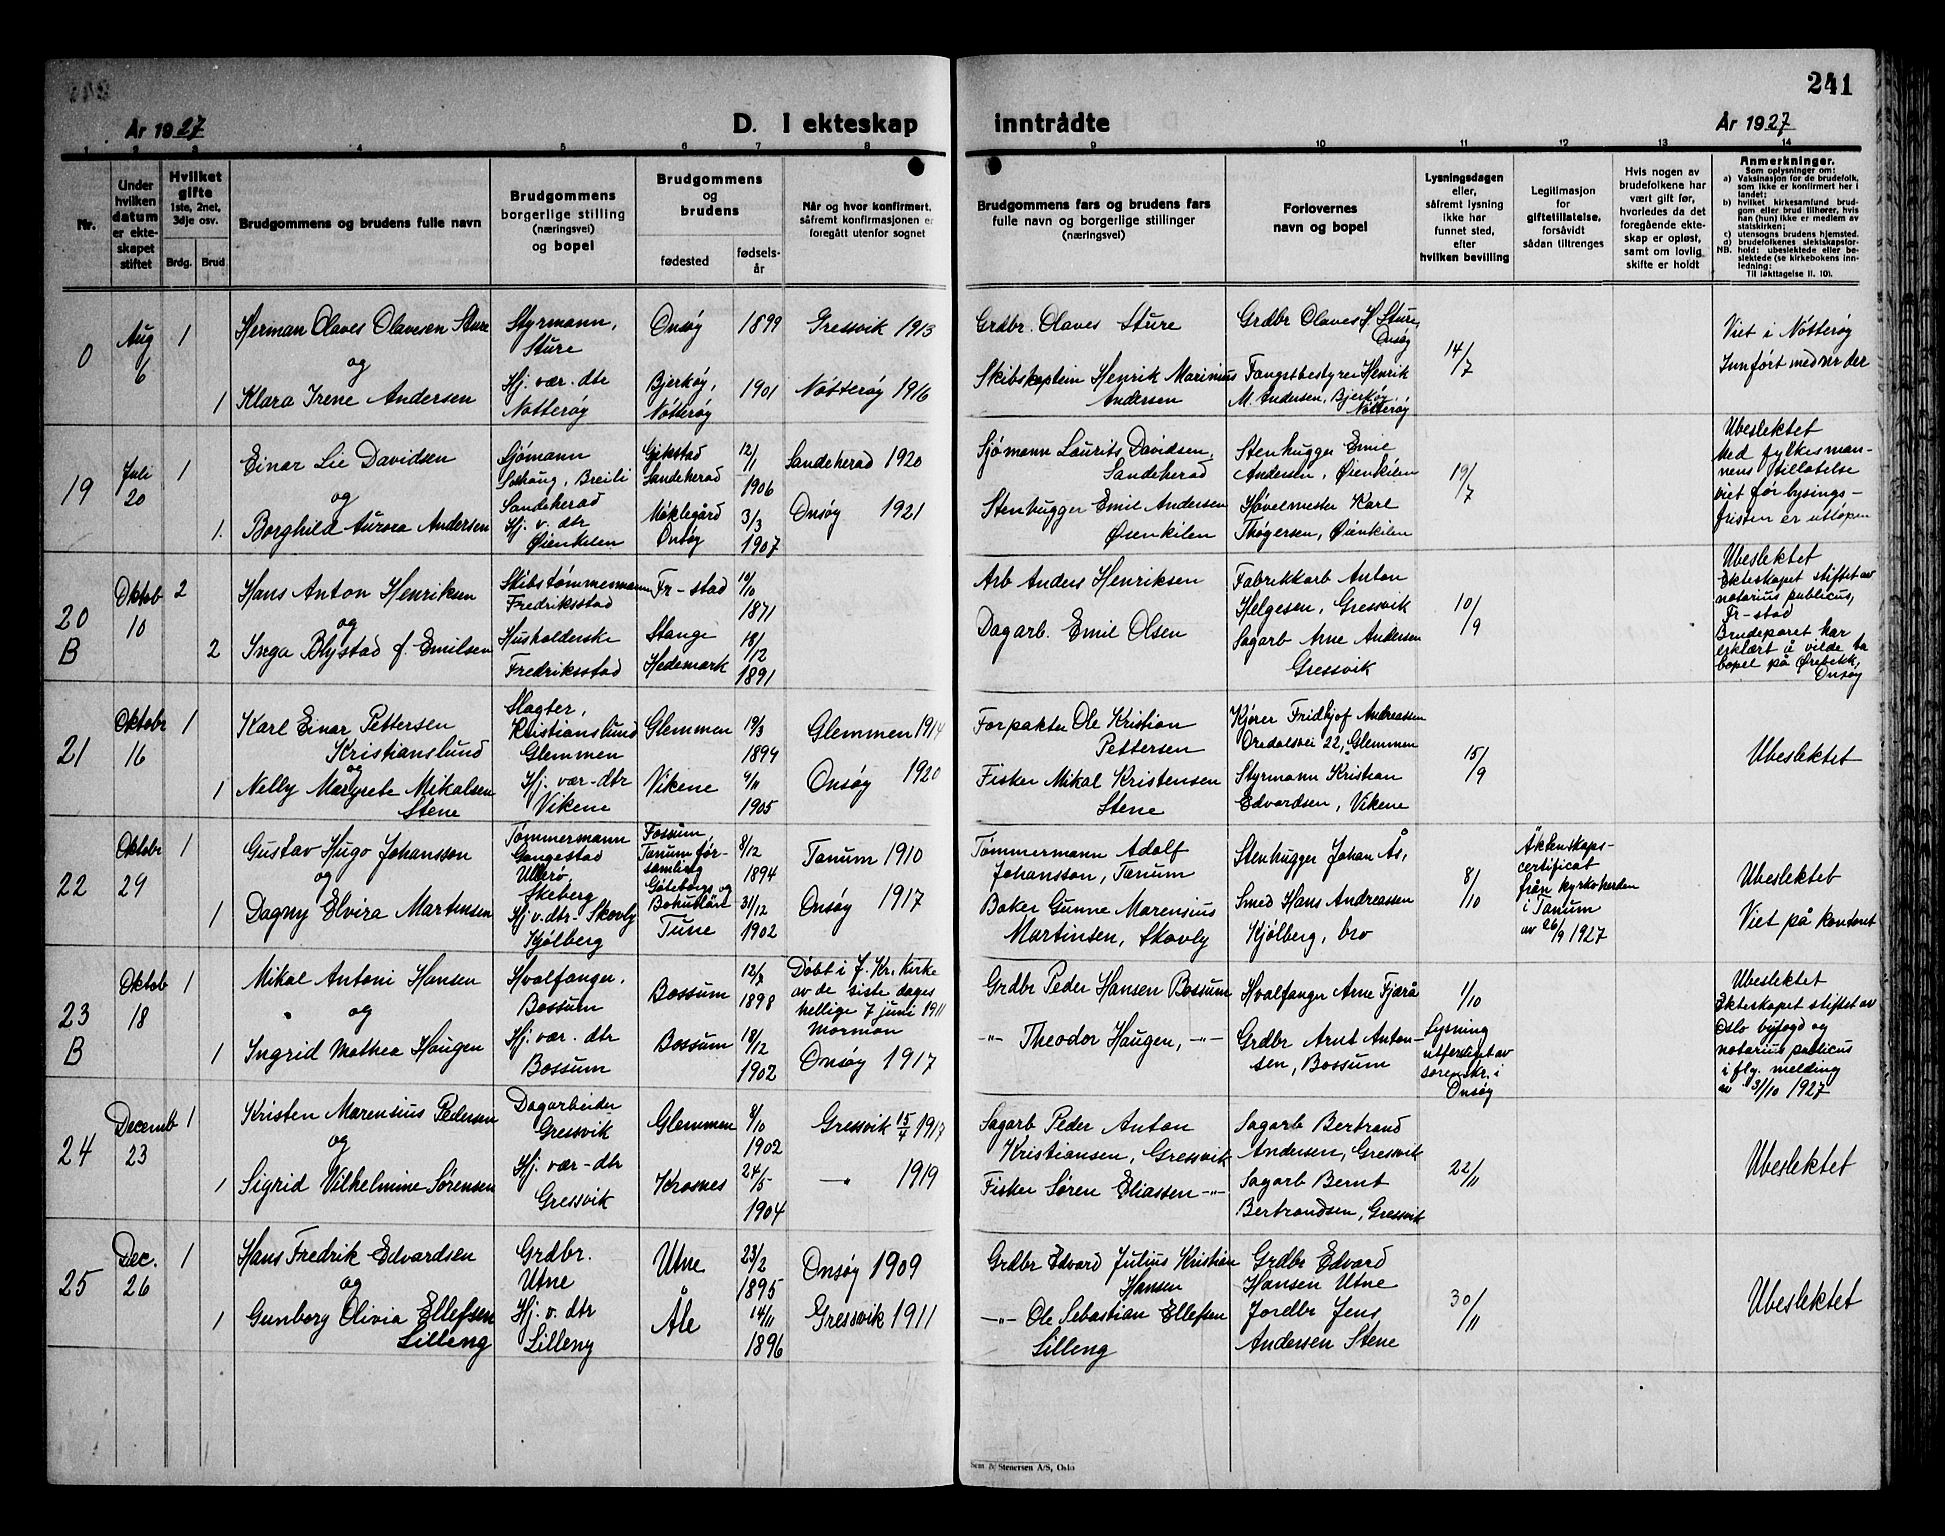 241
År 1927
D. I ekteskap
inntrådte
År 1927
1 2 3 4 5 6 7 8 9 10 11 12 13 14
Nr.
Under
hvilken
datum
er ekte-
skapet
stiftet
Hvilket
gifte
1ste, 2net,
3dje osv.
Brdg. Brud
Brudgommens og brudens fulle navn
Brudgommens
borgerlige stilling
(næringsvei)
og bopel
Brudgommens
og
brudens
fødested
fødsels-
år
Når og hvor konfirmert,
såfremt konfirmasjonen er
foregått utenfor sognet
Brudgommens fars og brudens fars
fulle navn og borgerlige stillinger
(næringsvei)
Forlovernes
navn og bopel
Lysningsdagen
eller,
såfremt lysning
ikke har
funnet sted,
efter
hvilken bevilling
Legitimasjon
for
giftetillatelse,
forsåvidt
sådan tiltrenges
Hvis nogen av
brudefolkene har
vært gift før,
hvorledes da det
foregående ekte-
skap er opløst,
samt om lovlig
skifte er holdt
Anmerkninger.
Som oplysninger om:
a) Vaksinasjon for de brudefolk,
som ikke er konfirmert her i
landet;
b) hvilket kirkesamfund brud-
gom eller brud tilhører, hvis
han (hun) ikke er medlem av
statskirken;
c) utensogns brudens hjemsted.
d) brudefolkenes slektskapsfor-
hold: ubeslektede eller be-
slektede (se kirkebokens inn-
ledning;
NB.
Til iakttagelse II. 10).
0
Aug
6
1
Herman Olaves Olavesen Sture
og
1 Klara Irene Andersen
Styrmann,
Sture
Hj. vær. dtr
Nøtterøy
Onsøy 1899
Bjerkøy,
Nøtterøy
1901
Gressvik 1913
Nøtterøy 1916
Grdbr. Olaves Sture
Skibskaptein Henrik Marinius
Andersen
Grdbr Olaves H Sture,
Onsøy
Fangstbestyrer Henrik
M. Andersen, Bjerkøy,
Nøtterøy
14/7
Viet i Nøtterøy
Innført med nr der
19
Juli
20
1
Einar Lie Davidsen
og
1. Borghild Aurora Andersen
Sjømann
Solhaug, Breili
Sandeherad
Hj. v. dtr
Øienkilen
Gjekstad
Sandeherad
12/1
1906
Møklegård
Onsøy
3/3
1907
Sandeherad 1920
Onsøy 1921
Sjømann Laurits Davidsen,
Sandeherad
Stenhugger Emil Andersen
Øienkilen
Stenhugger Emil
Andersen, Øienkilen
Høvelmester Karl
Thøgersen, Øienkilen
19/7
Ubeslektet
Med fylkesman-
nens tillatelse
viet før lysings-
fristen er utløpen
20
B
Oktob
10
2
Hans Anton Henriksen
og
2 Inga Blystad f. Emilsen
Skibstømmermann
Fredriksstad
Husholderske
Fredriksstad
Fr-stad
10/10
1871
Stange
Hedemark
18/12
1891
Arb Anders Henriksen
Dagarb. Emil Olsen
Fabrikkarb Anton
Helgesen, Gressvik
Sagarb Arne Andersen
Gressvik
10/9
Ubeslektet
Ekteskapet stiftet av
notarius publicus,
Fr-stad
Brudeparet har
erklært å vilde ta
bopel på Ørebekk,
Onsøy
21
Oktobr
16
1
Karl Einar Pettersen
Kristianslund
og
1 Nelly Margrete Mikalsen
Stene
Slagter,
Kristianslund
Glemmen
Hj. vær-dtr
Vikene
Glemmen
19/3
1899
Vikene
6/11
1905
Glemmen 1914
Onsøy 1920
Forpakter Ole Kristian
Pettersen
Fisker Mikal Kristensen
Stene
Kjører Fridtjof Andreassen
Oredalsvei 22, Glemmen
Styrmann Kristian
Edvardsen, Vikene
15/9
Ubeslektet
22
Oktobr
29
1
Gustav Hugo Johansson
og
1 Dagny Elvira Martinsen
Tømmermann
Gangestad
Ullerø
Skeberg
Hj. v. dtr. Skovly
Kjølberg
Fossum,
Tanum för-
samling
Göteborgs og
Bohuslän
8/12
1894
Tune
31/12
1902
Tanum 1910
Onsøy 1917
Tømmermann Adolf
Johansson, Tanum
Baker Gunne Marensius
Martinsen, Skovly
Stenhugger Johan Ås,
Smed Hans Andreassen
Kjølberg, bro
8/10
Äktenskaps-
certificat
från kyrkoherden
i Tanum
av 26/9 1927
Ubeslektet
Viet på kontoret
23
B
Oktob
18
1
Mikal Antoni Hansen
og
1 Ingrid Mathea Haugen
Hvalfanger,
Bossum
Hj. vær. dtr
Bossum
Bossum
12/7
1898
Bossum
18/12
1902
Døbt i J. Kr. Kirke
av de siste dages
hellige 7 juni 1911
Mormon
Onsøy 1917
Grdbr Peder Hansen Bossum
-"- Theodor Haugen, -"-
Hvalfanger Arne Fjærå
Grdbr Arnt Anton-
sen, Bossum
1/10
Lysning
utferdiget av
sorenskr. i
Onsøy
Ubeslektet
Ekteskapet stiftet av
Oslo byfogd og
notarius publicus
i flg. melding
av 31/10 1927
24
Decemb
23
1
Kristen Marensius Pedersen
og
1 Sigrid Vilhelmine Sørensen
Dagarbeider
Gressvik
Hj. vær-dtr
Gressvik
Glemmen
8/10
1902
Krosnes
24/5
1904
Gressvik 15/4 1917
-"- 1919
Sagarb Peder Anton
Kristiansen, Gressvik
Fisker Søren Eliassen -"-
Sagarb Bertrand
Andersen, Gressvik
Sagarb Bernt
Bertrandsen, Gressvik
22/11
Ubeslektet
25
Dec.
26
1
Hans Fredrik Edvardsen
og
1 Gunborg Olivia Ellefsen
Lilleng
Grdbr.
Utne
Hj. v. dtr
Lilleng
Utne
23/2
1895
Åle
14/11
1896
Onsøy 1909
Gressvik 1911
Grdbr Edvard Julius Kristian
Hansen
-"- Ole Sebastian Ellefsen
Lilleng
Grdbr Edvard
Hansen Utne
Jordbr Jens
Andersen Stene
30/11
Ubeslektet
Sem & Stenersen A/S, Oslo